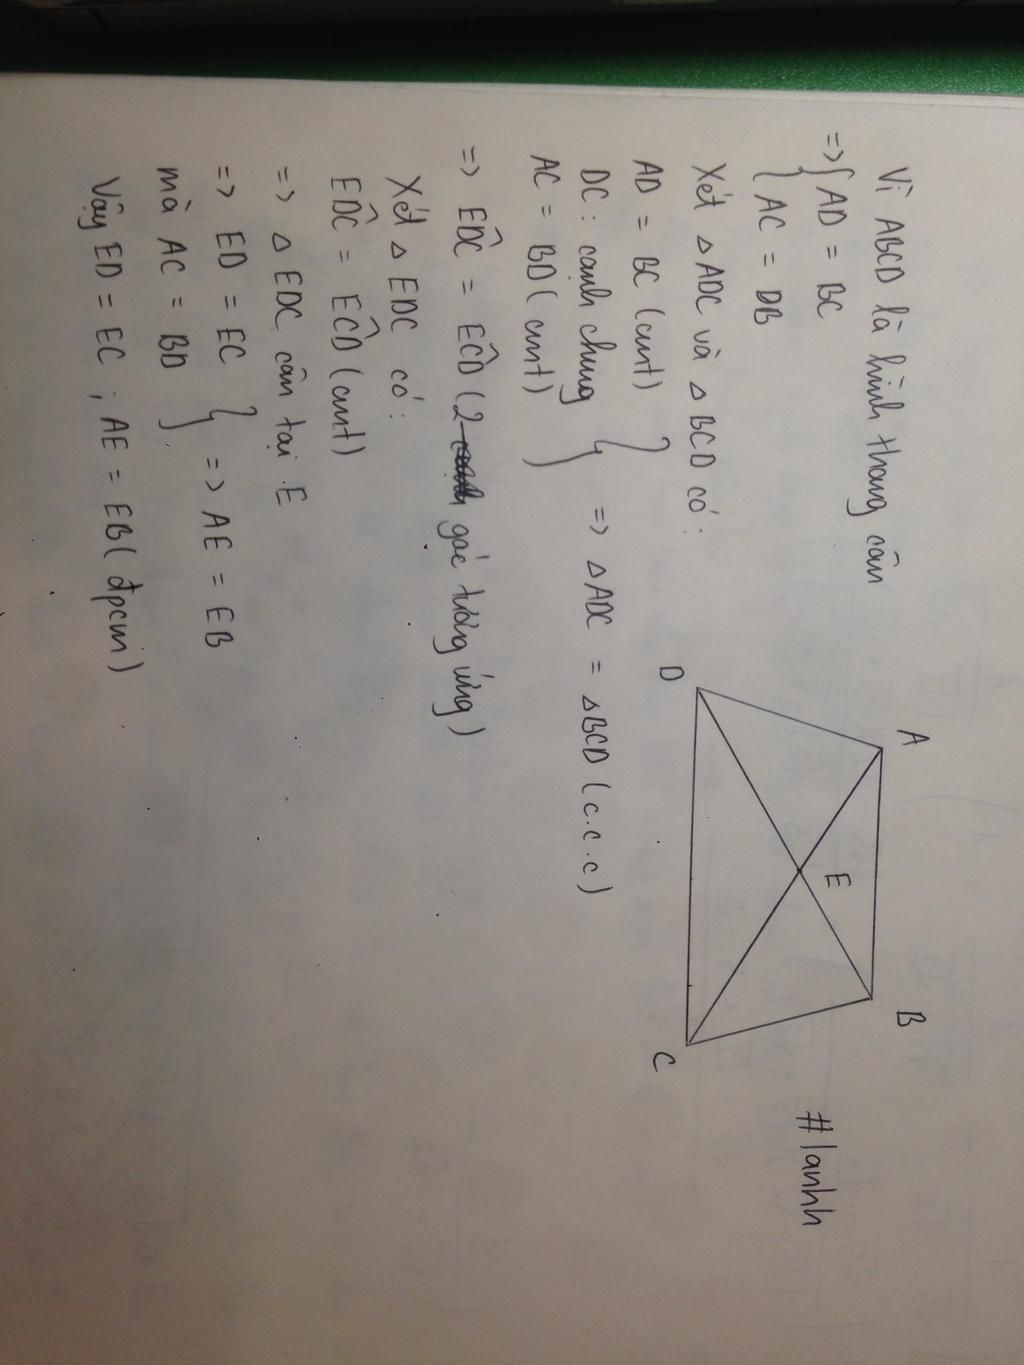 Vì ABCD là hình thang cân
=> { AD = BC
AC = DB
Xét △ADC và △BCD có:
AD = BC (cmt)
DC: cạnh chung } => △ADC = △BCD (c.c.c)
AC = BD (cmt)
=> EDC^ = ECD^ (2 góc tương ứng)
Xét △EDC có:
EDC^ = ECD^ (cmt)
=> △EDC cân tại E
=> ED = EC } => AE = EB
mà AC = BD
Vậy ED = EC ; AE = EB (đpcm)
A
B
E
D
C
#lanhh